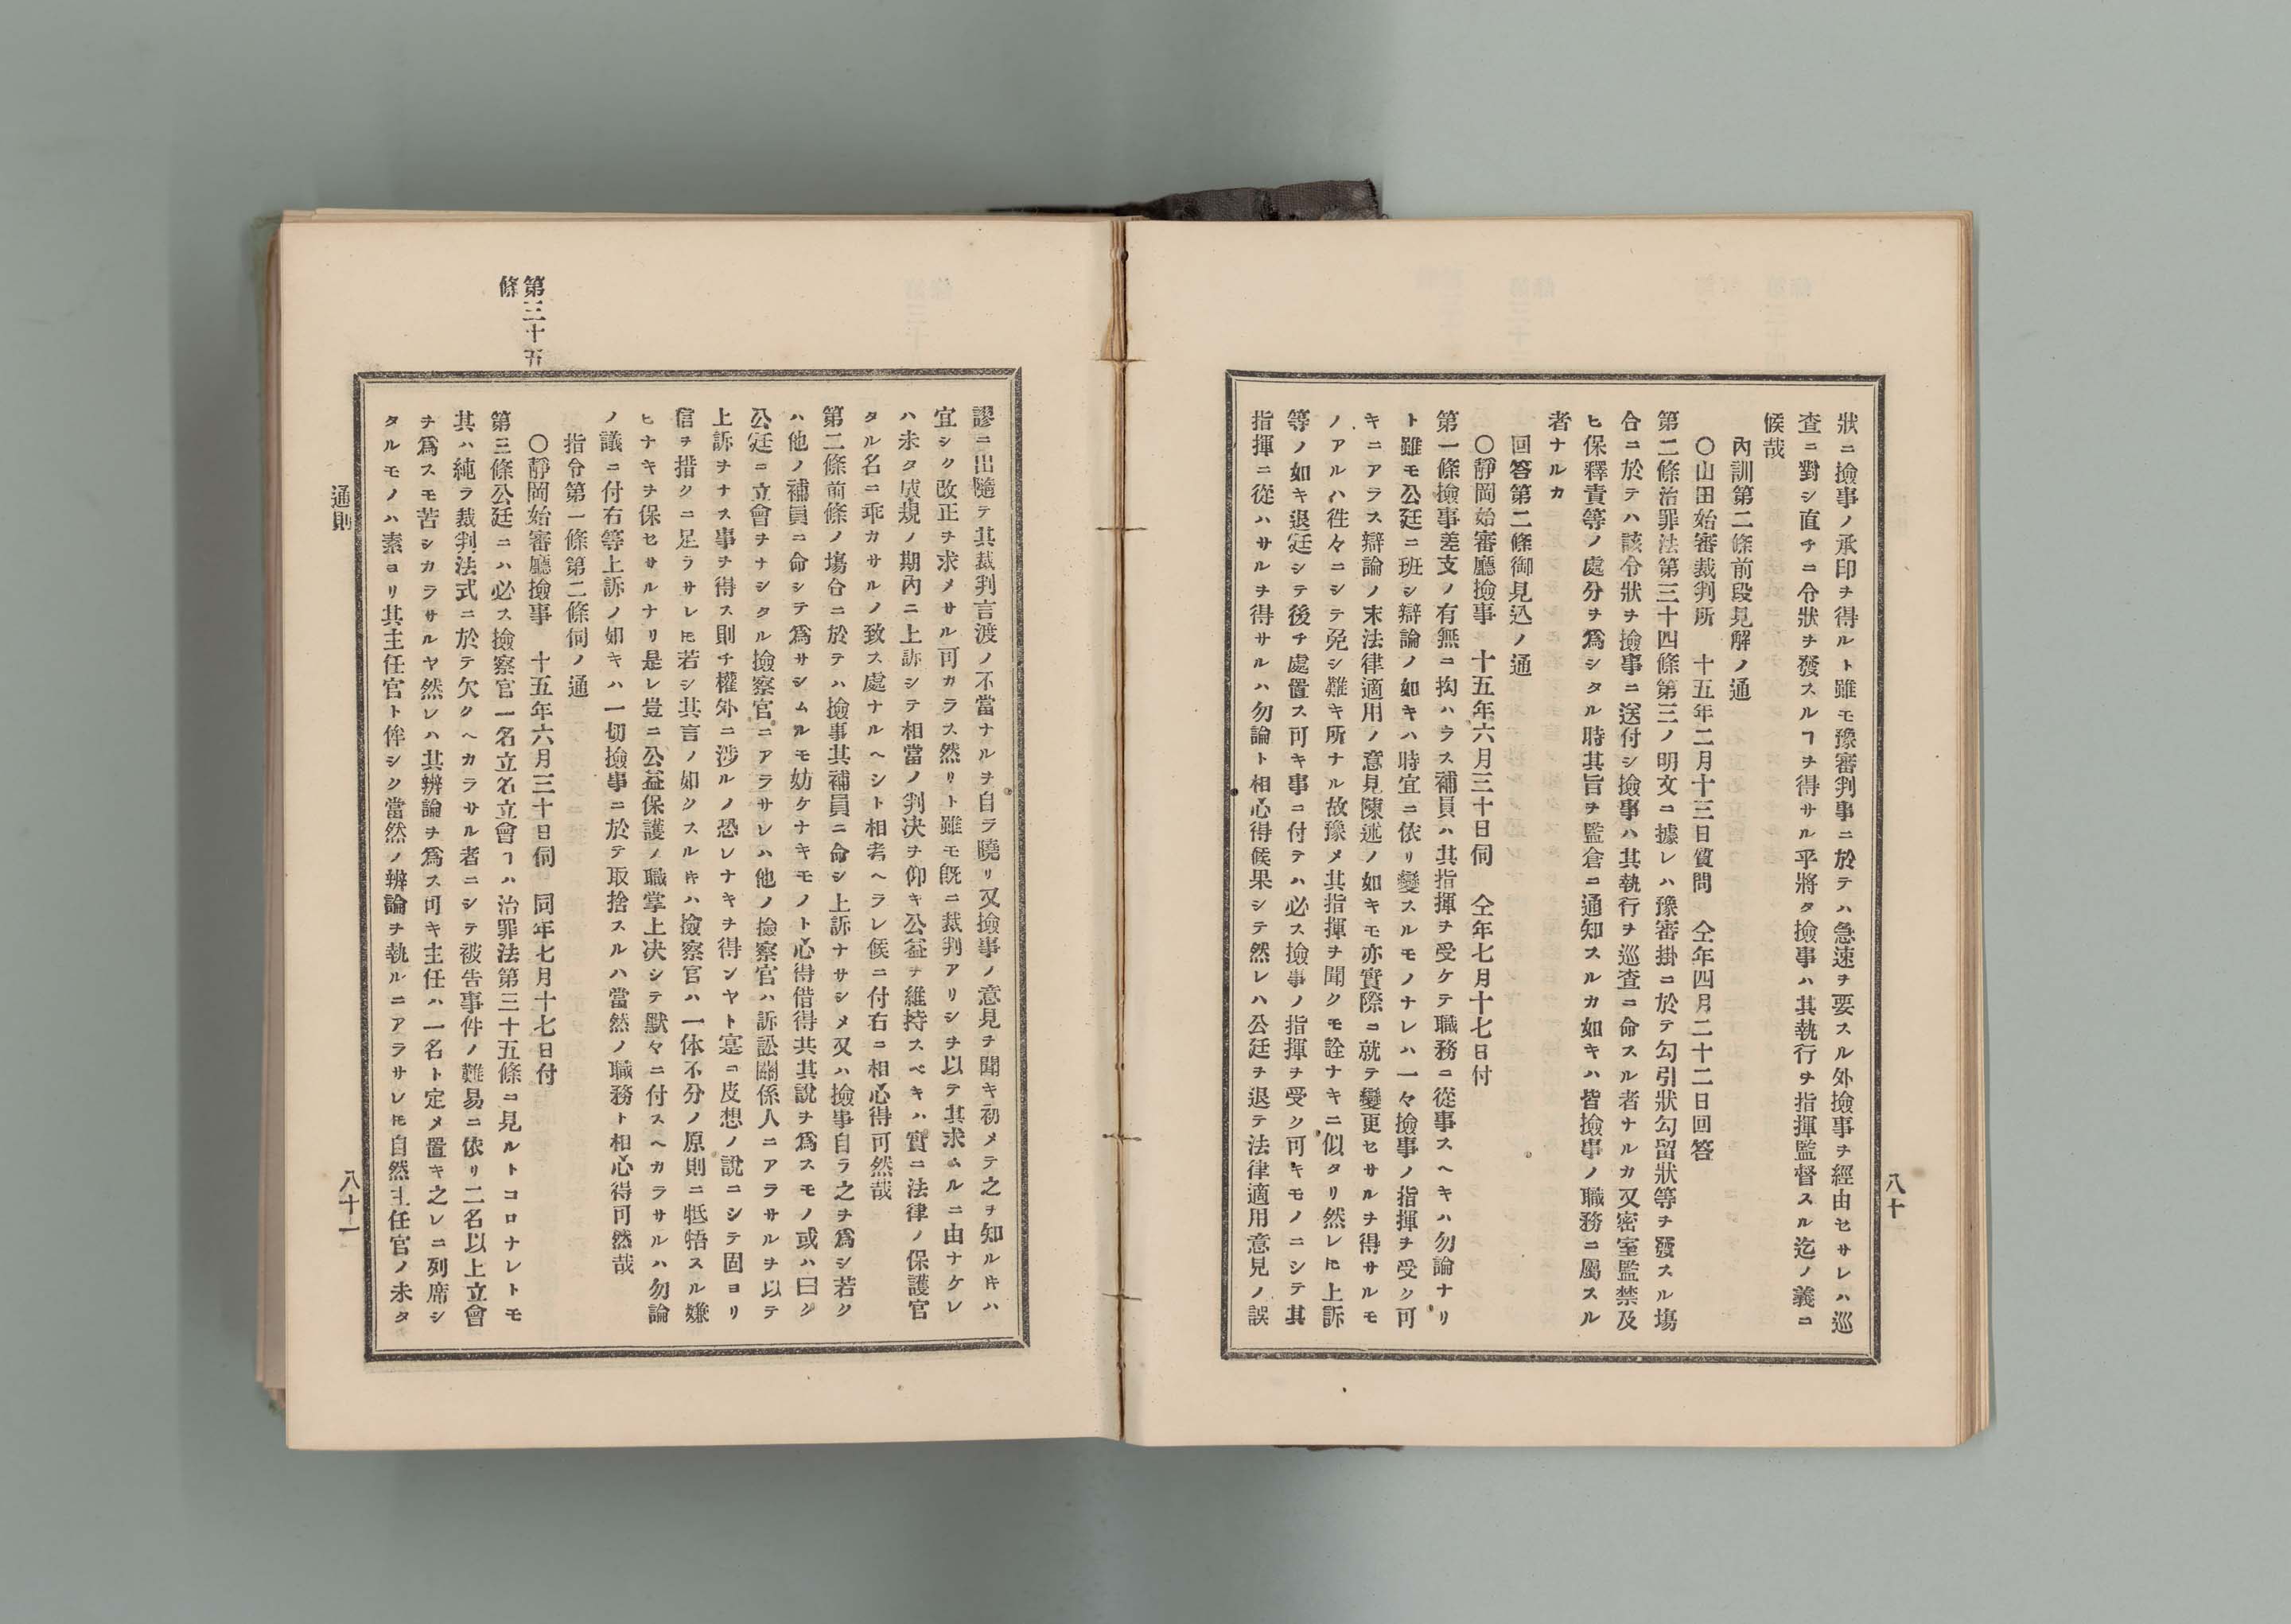 八十
狀ニ撿事ノ承印ヲ得ルト雖モ豫審判事ニ於テハ急速ヲ要スル外撿事ヲ經由セサレハ巡
査ニ對シ直チニ令狀ヲ發スルヿヲ得サル乎將タ撿事ハ其執行ヲ指揮監督スル迄ノ義ニ
候哉
內訓第二條前段見解ノ通
〇山田始審裁判所 十五年二月十三日質問 仝年四月二十二日回答
第二條治罪法第三十四條第三ノ明文ニ據レハ豫審掛ニ於テ勾引狀勾留狀等ヲ發スル塲
合ニ於テハ該令狀ヲ撿事ニ送付シ撿事ハ其執行ヲ巡査ニ命スル者ナルカ又密室監禁及
ヒ保釋責等ノ處分ヲ爲シタル時其旨ヲ監倉ニ通知スルカ如キハ皆撿事ノ職務ニ屬スル
者ナルカ
回答第二條御見込ノ通
〇靜岡始審廳撿事 十五年六月三十日伺 仝年七月十七日付
第一條撿事差支ノ有無ニ拘ハラス補員ハ其指揮ヲ受ケテ職務ニ從事スヘキハ勿論ナリ
ト雖モ公廷ニ班シ辯論ノ如キハ時宜ニ依リ變スルモノナレハ一々撿事ノ指揮ヲ受ク可
キニアラス辯論ノ末法律適用ノ意見陳述ノ如キモ亦實際ニ就テ變更セサルヲ得サルモ
ノアルハ徃々ニシテ免シ難キ所ナル故豫メ其指揮ヲ聞クモ詮ナキニ似タリ然レ𪜈上訴
等ノ如キ退廷シテ後チ處置ス可キ事ニ付テハ必ス撿事ノ指揮ヲ受ク可キモノニシテ其
指揮ニ從ハサルヲ得サルハ勿論ト相心得候果シテ然レハ公廷ヲ退テ法律適用意見ノ誤
謬ニ出隨テ其裁判言渡ノ不當ナルヲ自ラ曉リ又撿事ノ意見ヲ聞キ初メテ之ヲ知ルキハ
宜シク改正ヲ求メサル可カラス然リト雖モ旣ニ裁判アリシヲ以テ其求ムルニ由ナケレ
ハ未タ成規ノ期內ニ上訴シテ相當ノ判决ヲ仰キ公益ヲ維持スベキハ實ニ法律ノ保護官
タル名ニ乖カサルノ致ス處ナルヘシト相考ヘラレ候ニ付右ニ相心得可然哉
第二條前條ノ塲合ニ於テハ撿事其補員ニ命シ上訴ナサシメ又ハ撿事自ラ之ヲ爲シ若ク
ハ他ノ補員ニ命シテ爲サシムルモ妨ケナキモノト心得借得共其說ヲ爲スモノ或ハ曰ク
公廷ニ立會ヲナシタル撿察官ニアラサレハ他ノ撿察官ハ訴訟關係人ニアラサルヲ以テ
上訴ヲナス事ヲ得ス則チ權外ニ涉ルノ恐レナキヲ得ンヤト寔ニ皮想ノ說ニシテ固ヨリ
信ヲ措クニ足ラサレ𪜈若シ其言ノ如クスルキハ撿察官ハ一体不分ノ原則ニ牴牾スル嫌
ヒナキヲ保セサルナリ是レ豈ニ公益保護ノ職掌上决シテ默々ニ付スヘカラサルハ勿論
ノ議ニ付右等上訴ノ如キハ一切撿事ニ於テ取捨スルハ當然ノ職務ト相心得可然哉
指令第一條第二條伺ノ通
〇靜岡始審廳撿事 十五年六月三十日伺 同年七月十七日付
第三十五
條
第三條公廷ニハ必ス撿察官一名立名立會フハ治罪法第三十五條ニ見ルトコロナレトモ
其ハ純ラ裁判法式ニ於テ欠クヘカラサル者ニシテ被告事件ノ難易ニ依リ二名以上立會
ヲ爲スモ苦シカラサルヤ然レハ其辨論ヲ爲ス可キ主任ハ一名ト定メ置キ之レニ列席シ
タルモノハ素ヨリ其主任官ト侔シク當然ノ辨論ヲ執ルニアラサレ𪜈自然主任官ノ未タ
通則
八十一